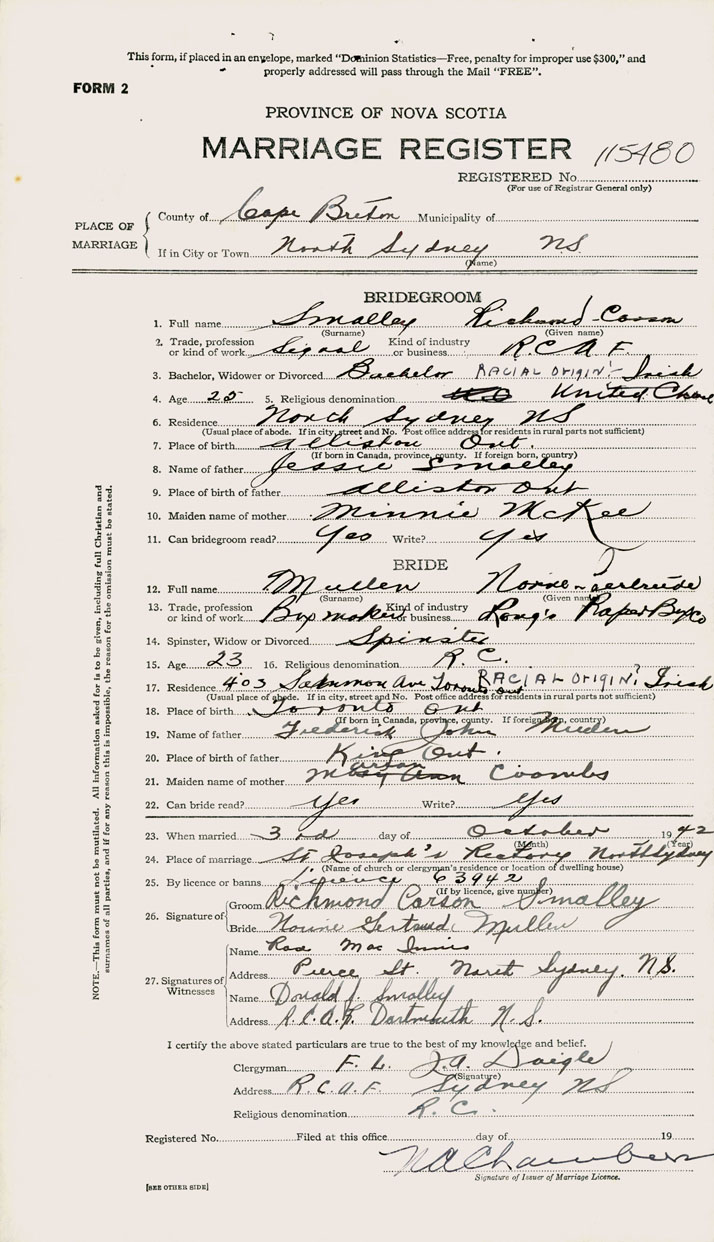 This form, if placed in an envelope, marked "Dominion Statistics—Free, penalty for improper use $300," and
properly addressed will pass through the Mail "FREE".
FORM 2
PROVINCE OF NOVA SCOTIA
MARRIAGE REGISTER 115480
REGISTERED No.
(For use of Registrar General only)
PLACE OF MARRIAGE
County of Cape Breton Municipality of
If in City or Town North Sydney NS
(Name)
BRIDEGROOM
1. Full name Smalley Richmond Carson
(Surname) (Given name)
2. Trade, profession or kind of work Signal Kind of industry or business R.C.A.F.
3. Bachelor, Widower or Divorced Bachelor RACIAL ORIGIN:- Irish
4. Age 25 5. Religious denomination United
6. Residence North Sydney NS
(Usual place of abode. If in city, street and No. Post office address for residents in rural parts not sufficient)
7. Place of birth Alliston Ont.
(If born in Canada, province, county. If foreign born, country)
8. Name of father Jessie Smalley
9. Place of birth of father Alliston Ont
10. Maiden name of mother Minnie McKee
11. Can bridegroom read? Yes Write? Yes
BRIDE
12. Full name Mullen Norine Gertrude
(Surname) (Given name)
13. Trade, profession or kind of work Box maker Kind of industry or business Long's Paper Box Co
14. Spinster, Widow or Divorced Spinster
15. Age 23 16. Religious denomination R.C.
17. Residence 403 Sammon Ave Toronto Ont RACIAL ORIGIN? Irish
(Usual place of abode. If in city, street and No. Post office address for residents in rural parts not sufficient)
18. Place of birth Toronto Ont
(If born in Canada, province, county. If foreign born, country)
19. Name of father Frederick John Mullen
20. Place of birth of father King Ont.
21. Maiden name of mother Coombs
22. Can bride read? Yes Write? Yes
23. When married 3rd day of October 1942
(Month) (Year)
24. Place of marriage St Joseph's Rectory North Sydney
(Name of church or clergyman's residence or location of dwelling house)
25. By licence or banns Licence 63942
(If by licence, give number)
26. Signature of
Groom Richmond Carson Smalley
Bride Norine Gertrude Mullen
27. Signatures of Witnesses
Name Rose Mac Innis
Address Pierce St. North Sydney, N.S.
Name Donald J. Smalley
Address R.C.A.F. Dartmouth N.S.
I certify the above stated particulars are true to the best of my knowledge and belief.
Clergyman F. L. J.A. Daigle
(Signature)
Address R.C.A.F. Sydney NS
Religious denomination R.C.
Registered No. Filed at this office day of 19
Chambers
Signature of Issuer of Marriage Licence.
[SEE OTHER SIDE]
NOTE.—This form must not be mutilated. All information asked for is to be given, including full Christian and
surnames of all parties, and if for any reason this is impossible, the reason for the omission must be stated.